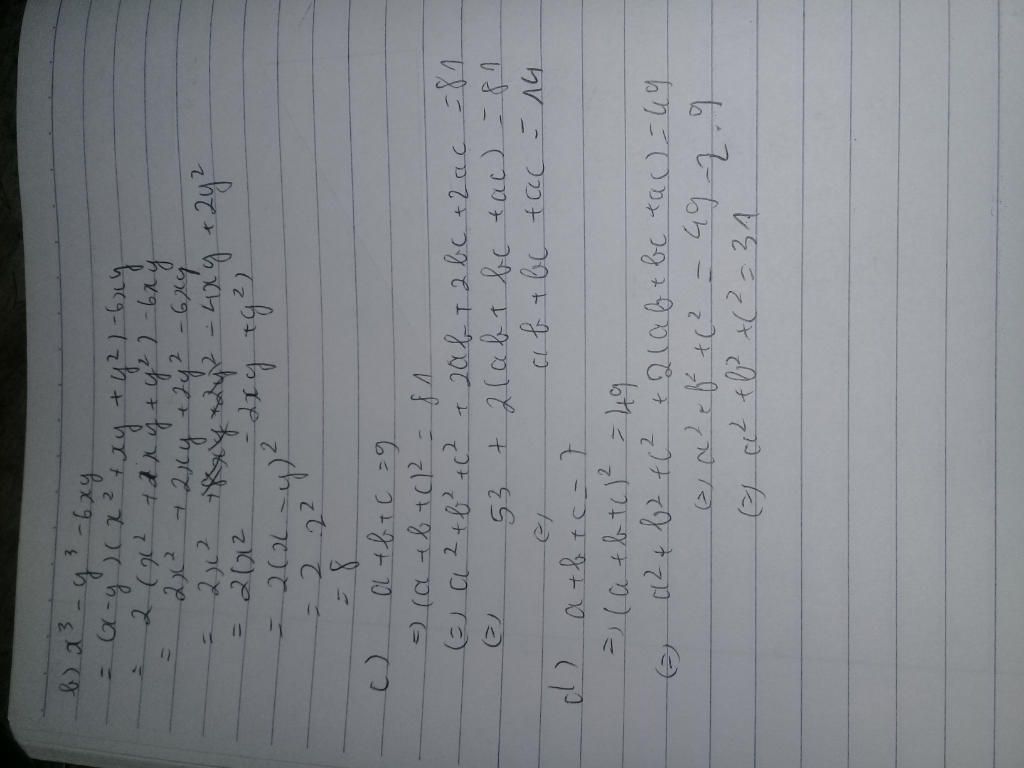 b) x³ - y³ - 6xy
= (x-y)(x² + xy + y²) - 6xy
= 2(x² + xy + y²) - 6xy
= 2x² + 2xy + 2y² - 6xy
= 2x² - 4xy + 2y²
= 2(x² - 2xy + y²)
= 2(x - y)²
= 2.2²
= 8
c) a+b+c = 9
=) (a+b+c)² = 81
(=) a² + b² + c² + 2ab + 2bc + 2ac = 81
(=) 53 + 2(ab + bc + ac) = 81
(=) ab + bc + ac = 14
d) a+b+c = 7
=) (a+b+c)² = 49
(=) a² + b² + c² + 2(ab + bc + ac) = 49
(=) a² + b² + c² = 49 - 2.9
(=) a² + b² + c² = 31